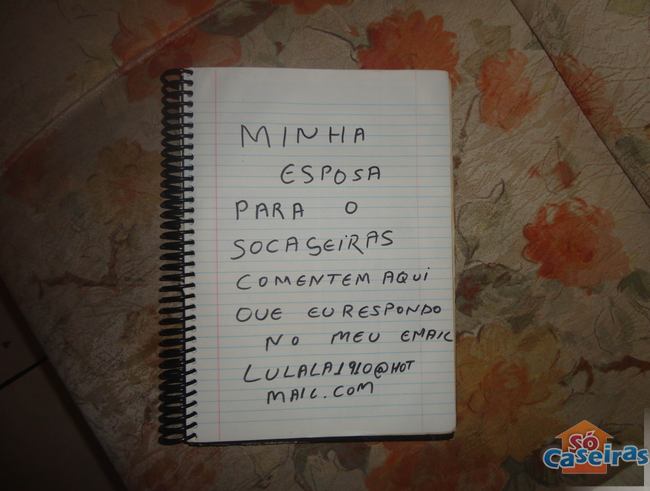 MINHA
ESPOSA
PARA O
SOCASEIRAS
COMENTEM AQUI
QUE EU RESPONDO
NO MEU EMAIL
LULALA1910@HOT
MAIL.COM
Só
Caseiras